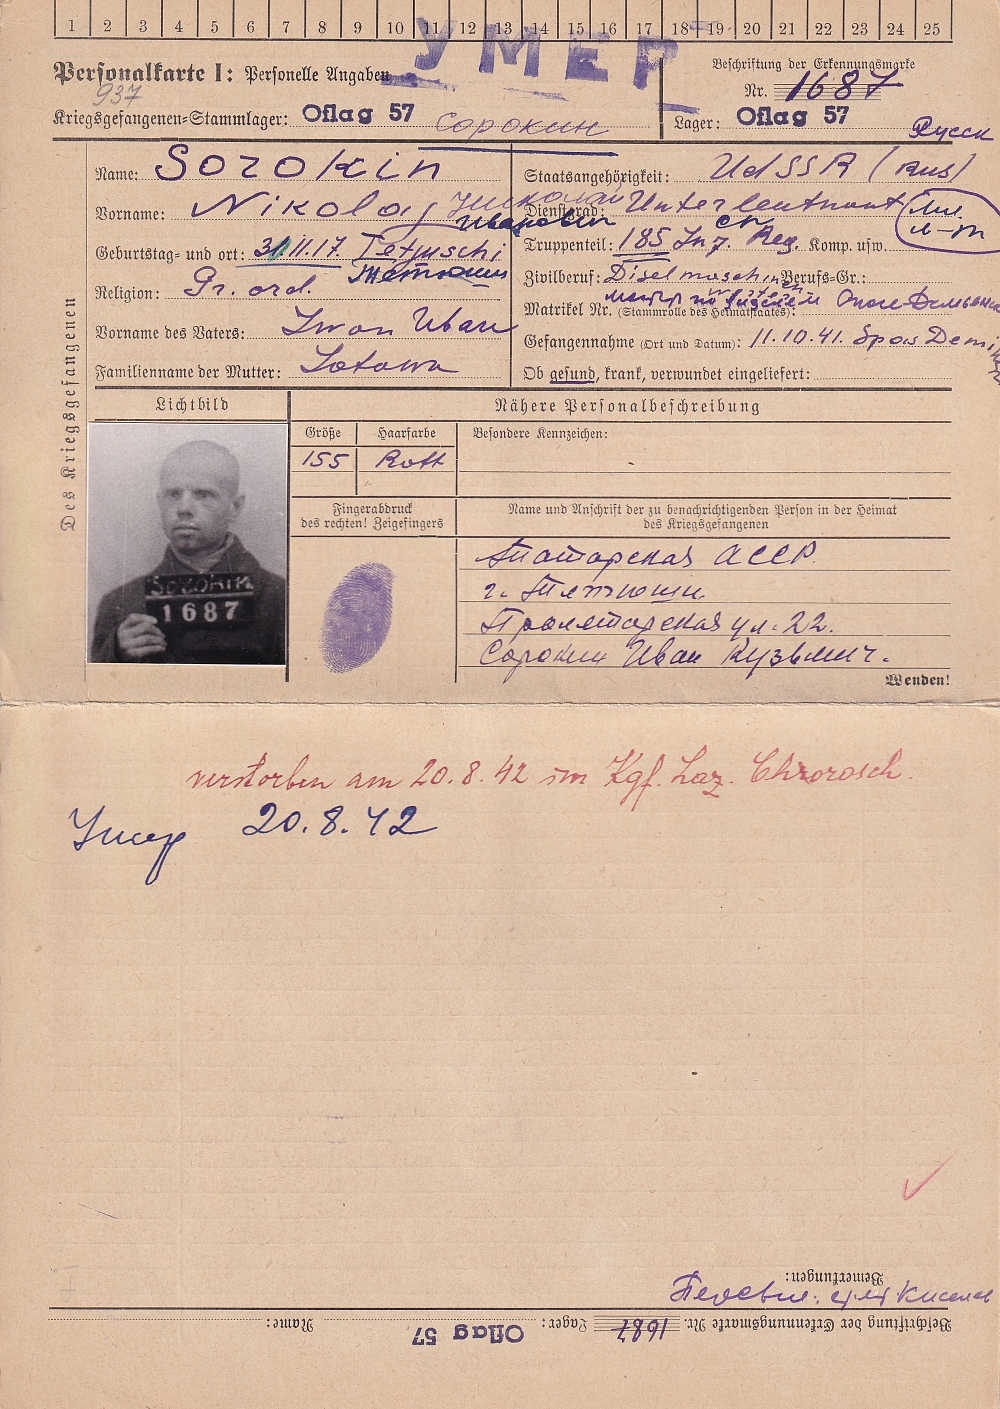 1 2 3 4 5 6 7 8 9 10 11 12 13 14 15 16 17 18 19 20 21 22 23 24 25
УМЕР
Personalkarte I: Personelle Angaben
Beschriftung der Erkennungsmarke
937
Nr. 1687
Kriegsgefangenen-Stammlager: Oflag 57 Сорокин
Lager: Oflag 57
Русск
Des Kriegsgefangenen
Name: Sorokin
Staatsangehörigkeit: UdSSR (Rus)
Vorname: Nikolaj Николай
Иванович
Dienstgrad: Unterleutnant
мл.
л-т
Geburtstag- und ort: 30.11.17 Tetjuschi
Тетюши
Truppenteil: 185 Inf. Reg. Komp. usw.
сп
Religion: Gr. ord.
Zivilberuf: Diselmaschinen Berufs-Gr.:
Matrikel Nr. (Stammrolle des Heimatstaates):
Vorname des Vaters: Iwan
Gefangennahme (Ort und Datum): 11.10.41. Spas Demi
Familienname der Mutter: Lotowa
Ob gesund, krank, verwundet eingeliefert:
Lichtbild
Nähere Personalbeschreibung
Größe Haarfarbe Besondere Kennzeichen:
155 Rott -
Fingerabdruck
des rechten! Zeigefingers
Name und Anschrift der zu benachrichtigenden Person in der Heimat
des Kriegsgefangenen
SOROKIN
1687
Татарская АССР.
г. Тетюши
Пролетарская ул. 22.
Сорокин Иван Кузьмич.
Wenden!
verstorben am 20.8.42 im Kgf. Laz. Chrorosch.
Умер 20.8.42
Bemerkungen:
Перевел: Киселев
Beschriftung der Erkennungsmarke Nr. 1687 Lager: Oflag 57 Name: